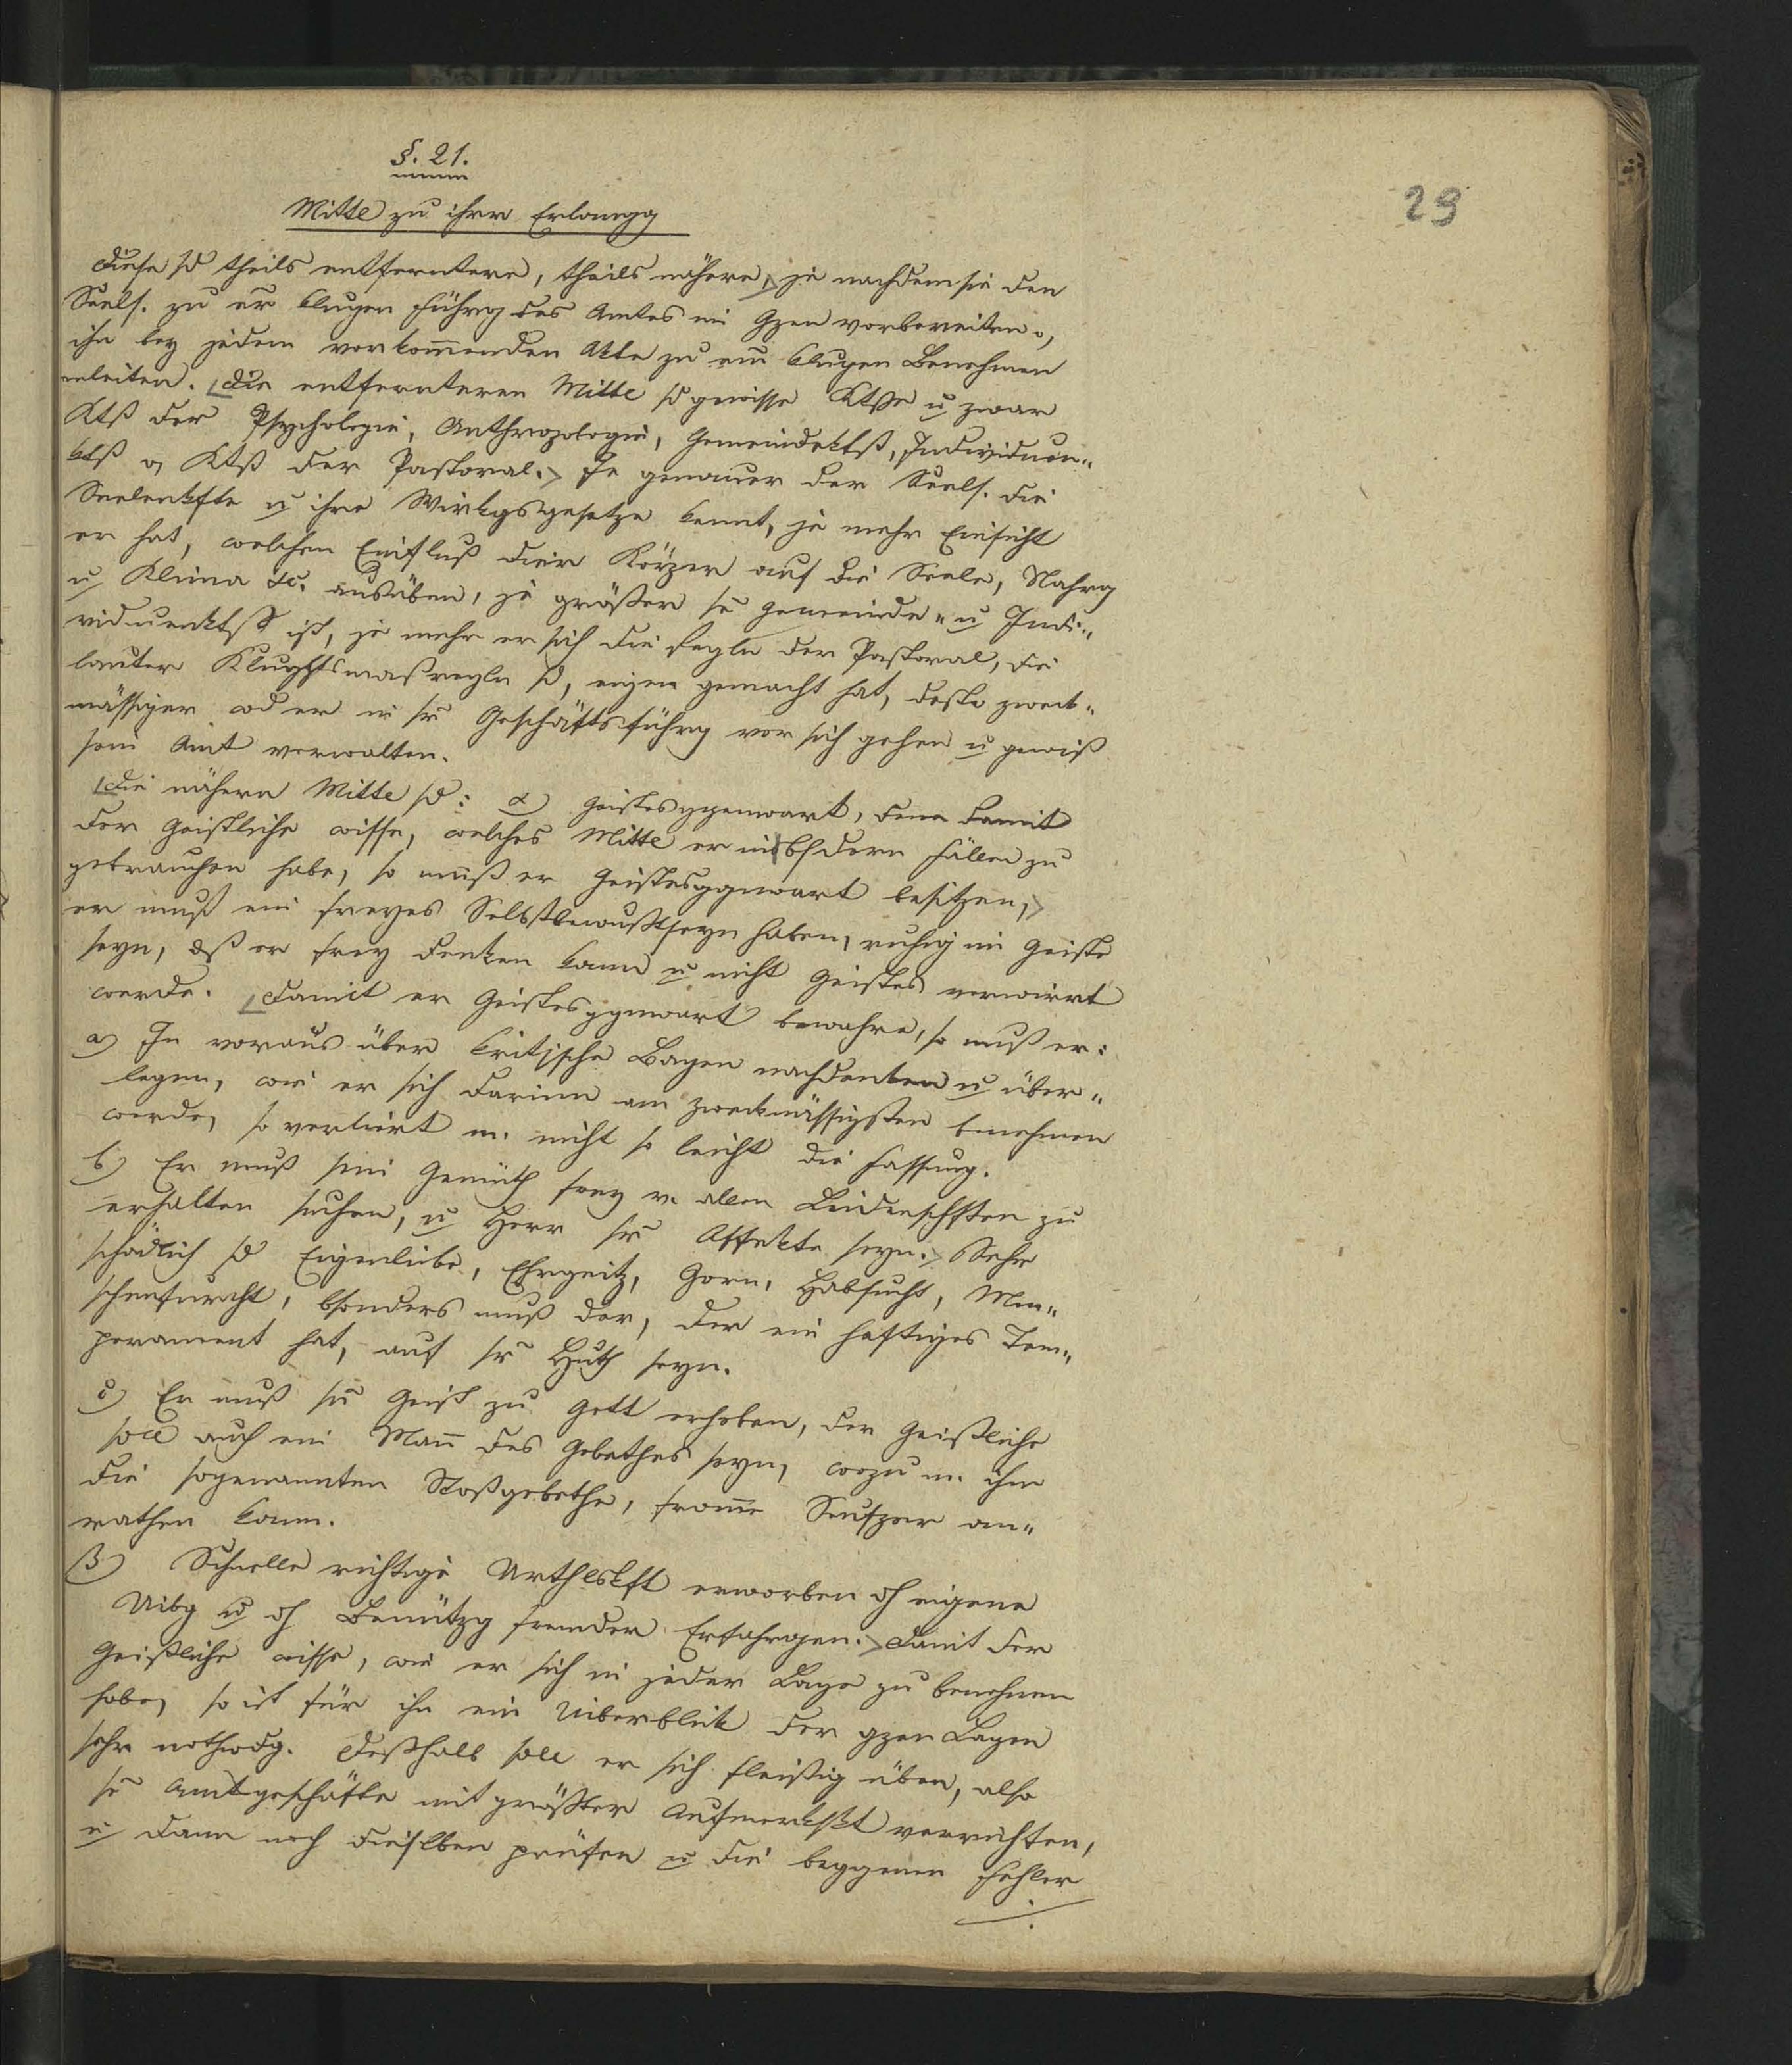 §. 21.
29
Mittel zu ihrer Erlangg
Diese sd theils entferntere, theils nähere, je nachdem sie den
Seels. zu er klugen Führg des Amtes im Gzen vorbereiten o,
ihn bey jedem vorkom̄enden Akte zu ein klugen Benehmen
anleiten. Die entfernteren Mittel sd gewisse Ktße u zwar
Ktß der Psychologie, Anthropologie, Gemeindektß, Individuen„
ktß o, Ktß der Pastoral. Je genauer der Seels. die
Seelenkfte u ihre Wirkgsgesetze kennt, je mehr Einsicht
er hat, welchen Einfluß der Körper auf die Seele, Nahrg
u Klima &c. ausüben, je größer se Gemeinde„ u Indi„
viduenktß ist, je mehr er sich die Regln der Pastoral, die
lauter Klughtsmaßregln sd, eigen gemacht hat, desto zweck„
mässiger wd er in sr Geschäftsführg vor sich gehen u gewiß
sein Amt verwalten.
Die nähern Mittel sd: α) Geistesggenwart, denn damit
der Geistliche wisse, welches Mittel er in bsdern Fällen zu
gebrauchen habe, so muß er Geistesggnwart besitzen,
er muß ein freyes Selbstbewußtseyn haben, ruhig im Geiste
seyn, dß er frey denken kann u nicht Geistes verwirrt
werde. Damit er Geistesggnwart bewahre, so muß er:
a) Im voraus über kritische Lagen nachdenken u über„
legen, wie er sich darinn am zweckmässigsten benehmen
werde, so verliert m. nicht so leicht die Fassung.
b) Er muß sein Gemüth frey v. allen Leidenschften zu
erhalten suchen, u Herr sr Affekte seyn. Sehr
schädlich sd Eigenliebe, Ehrgeitz, Zorn, Habsucht, Men„
schenfurcht, bsonders muß der, der ein heftiges Tem„
perament hat, auf sr Huth seyn.
c) Er muß sn Geist zu Gott erheben, der Geistliche
soll auch ein Man̄ des Gebethes seyn, wozu m. ihm
die sogenannten Stoßgebethe, from̄e Seufzer an„
rathen kann.
β) Schnelle richtige Urthlskft erworben dh eigene
Uibg u dh Benützg fremder Erfahrgen. Damit der
Geistliche wisse, wie er sich in jeder Lage zu benehmen
habe, so ist für ihn ein Uiberblick der gzen Lagen
sehr nothwdg. Deßhalb soll er sich fleißig üben, also
se Amtgeschäfte mit größter Aufmerkskt verrichten,
u dann noch dieselben prüfen u die beggenen Fehler